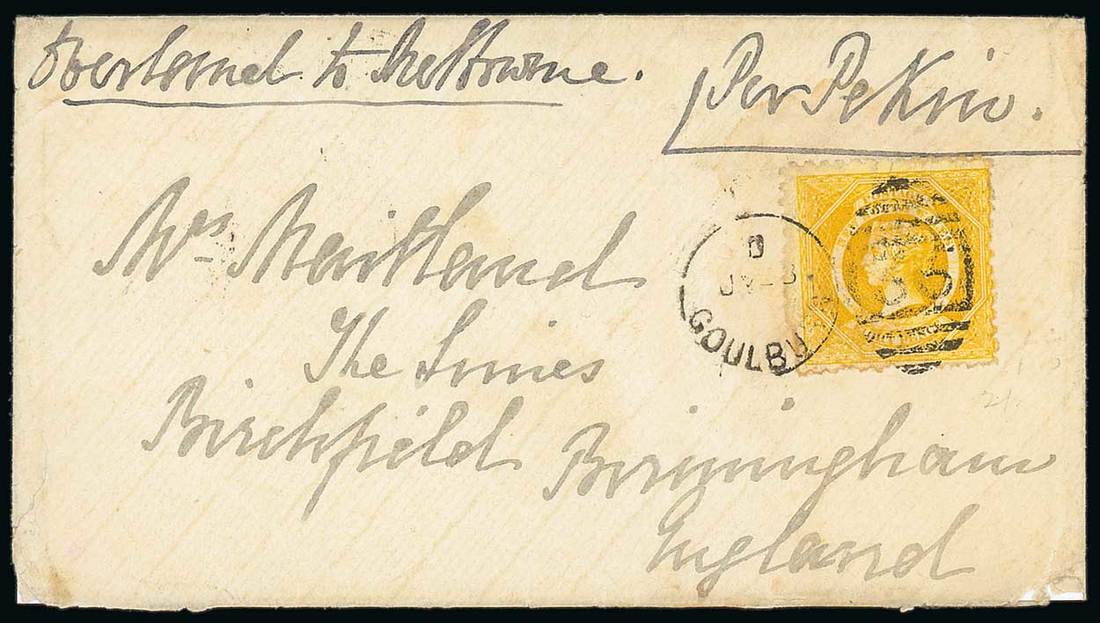 Overland to Melbourne.
Per Pekin.
Mrs. Maitland
The Limes
Birchfield Birmingham
England
GOULBURN